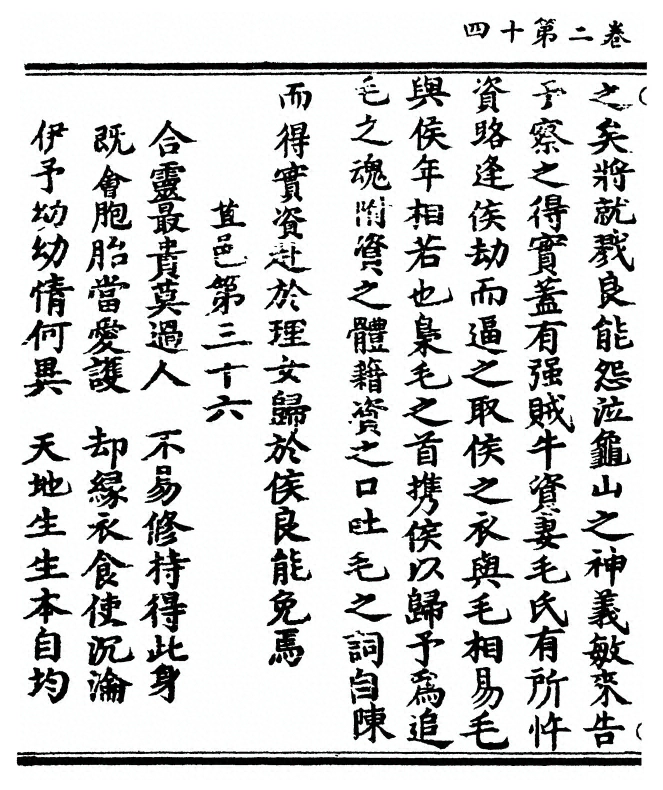 卷二第十四
之矣將就戮良能怨泣龜山之神義敏來告
予察之得實蓋有强賊牛資妻毛氏有所忤
資路逢侯劫而逼之取侯之衣與毛相易毛
與侯年相若也梟毛之首携侯以歸予爲追
毛之魂附資之體藉資之口吐毛之詞自陳
而得實資赴於理女歸於侯良能免焉
苴邑第三十六
合靈最貴莫過人　不易修持得此身
既會胞胎當愛護　却緣衣食使沉淪
伊予幼幼情何異　天地生生本自均